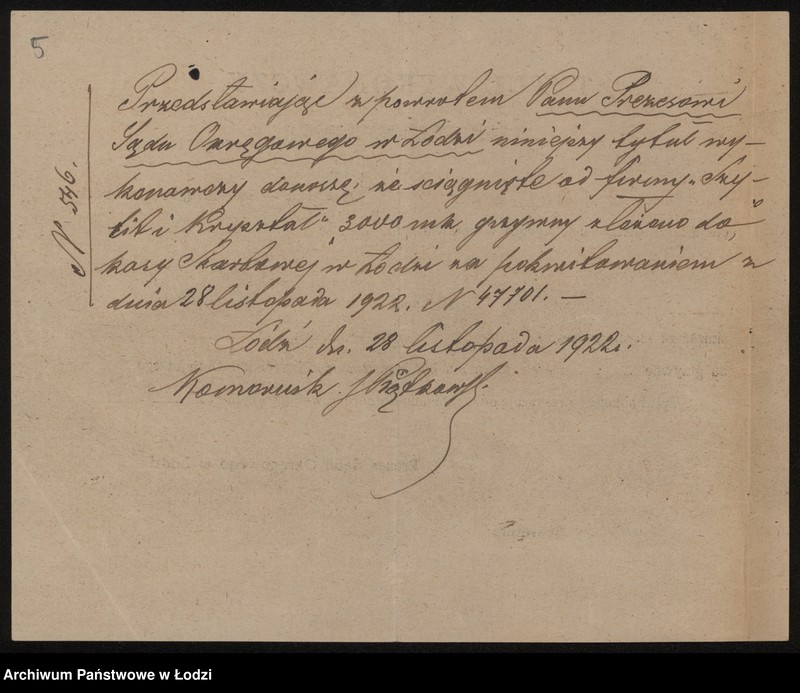 5
N 546.
Przedstawiając z powrotem Panu Prezesowi
Sądu Okręgowego w Łodzi niniejszy tytuł wy-
konawczy donoszę, że ściągnięte od firmy „Szy-
lit i Kryształ" 3000 mk. grzywny złożono do
kasy Skarbowej w Łodzi za pokwitowaniem z
dnia 28 listopada 1922. N 47701. —
Łódź dn. 28 listopada 1922.
Komornik
Archiwum Państwowe w Łodzi